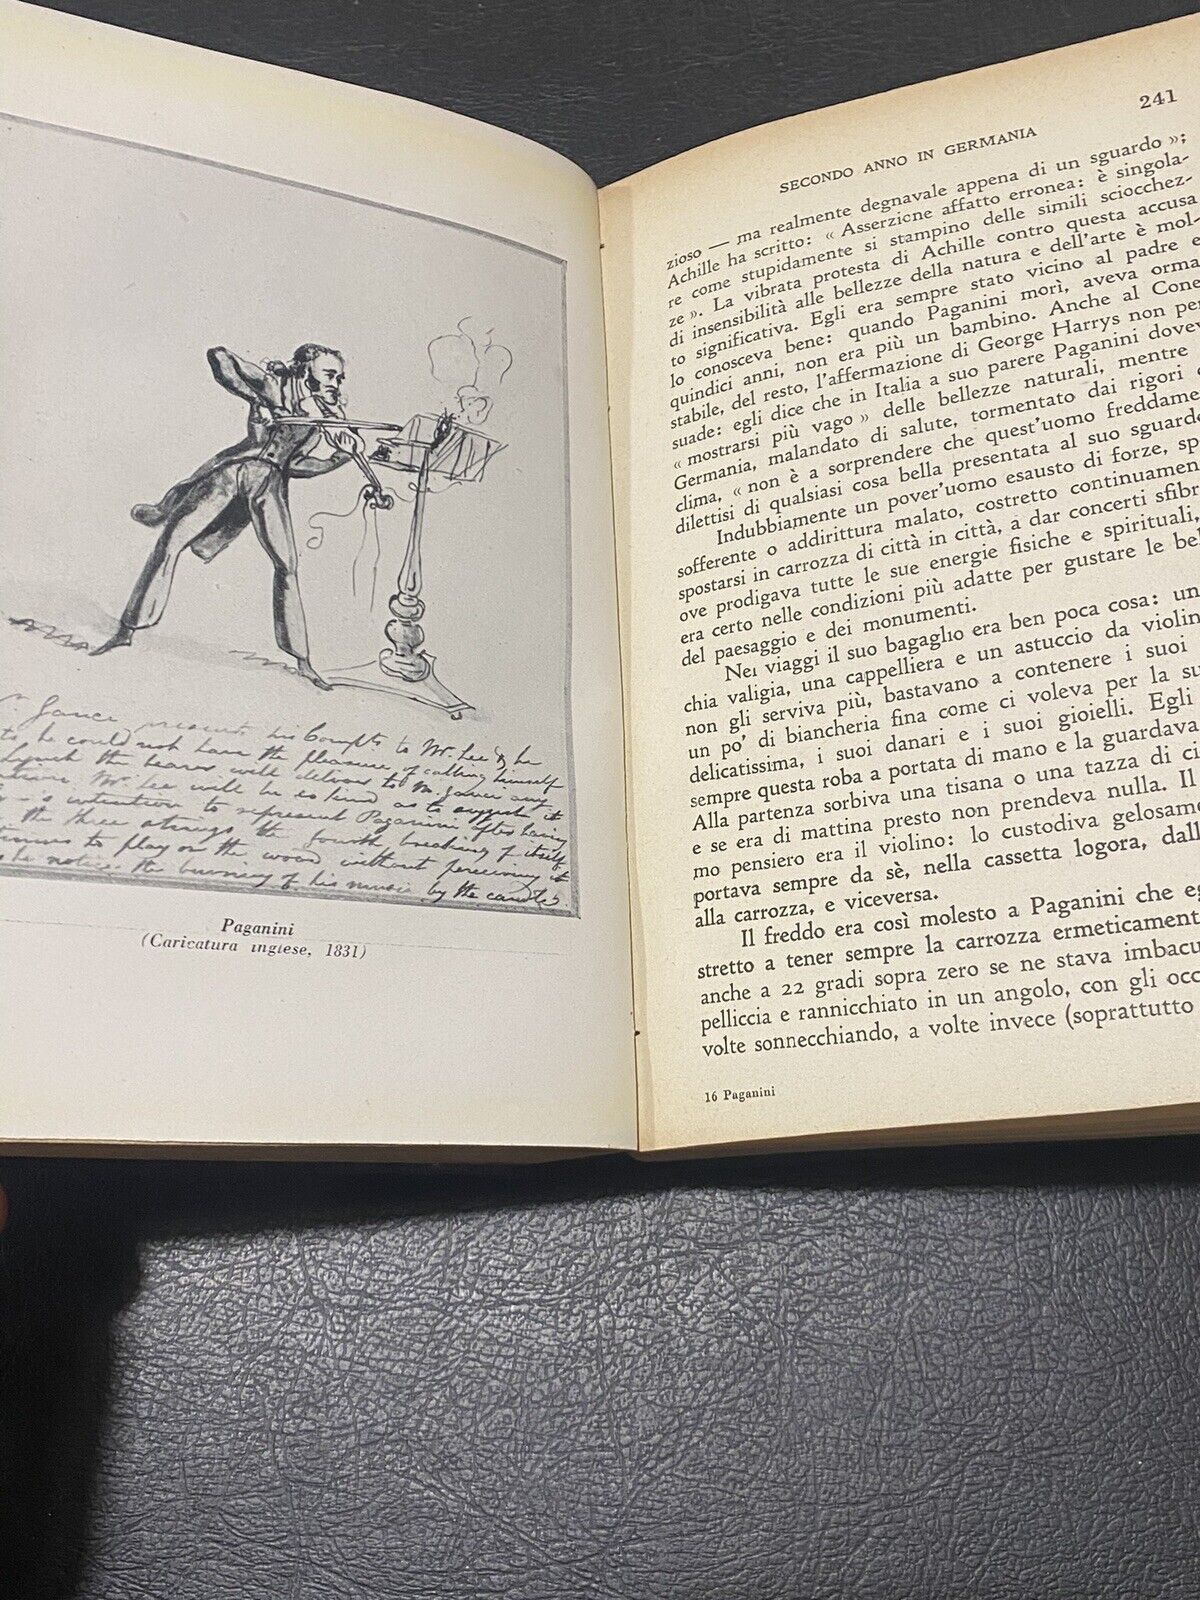 Jauci presents his Compts to Mr. Lee & he
he could not have the pleasure of calling himself
the bearer will deliver to M. Jauci any
Mr. Lee will be so kind as to suggest it
is intention to represent Paganini after having
the three strings the fourth breaking of itself
to play on the wood without perceiving it
he notice the burning of his music by the candles
Paganini
(Caricatura inglese, 1831)
241
SECONDO ANNO IN GERMANIA
zioso — ma realmente degnavale appena di un sguardo »;
Achille ha scritto: « Asserzione affatto erronea: è singola-
re come stupidamente si stampino delle simili sciocchez-
ze ». La vibrata protesta di Achille contro questa accusa
di insensibilità alle bellezze della natura e dell'arte è mol-
to significativa. Egli era sempre stato vicino al padre e
lo conosceva bene: quando Paganini morì, aveva orma
quindici anni, non era più un bambino. Anche al Cone
stabile, del resto, l'affermazione di George Harrys non per
suade: egli dice che in Italia a suo parere Paganini dovev
« mostrarsi più vago » delle bellezze naturali, mentre
Germania, malandato di salute, tormentato dai rigori
clima, « non è a sorprendere che quest'uomo freddame
dilettisi di qualsiasi cosa bella presentata al suo sguardo
Indubbiamente un pover'uomo esausto di forze, sp
sofferente o addirittura malato, costretto continuamen
spostarsi in carrozza di città in città, a dar concerti sfibr
ove prodigava tutte le sue energie fisiche e spirituali,
era certo nelle condizioni più adatte per gustare le bel
del paesaggio e dei monumenti.
Nei viaggi il suo bagaglio era ben poca cosa: un
chia valigia, una cappelliera e un astuccio da violin
non gli serviva più, bastavano a contenere i suoi
un po' di biancheria fina come ci voleva per la su
delicatissima, i suoi danari e i suoi gioielli. Egli
sempre questa roba a portata di mano e la guardava
Alla partenza sorbiva una tisana o una tazza di ci
e se era di mattina presto non prendeva nulla. Il
mo pensiero era il violino: lo custodiva gelosam
portava sempre da sè, nella cassetta logora, dall
alla carrozza, e viceversa.
Il freddo era così molesto a Paganini che eg
stretto a tener sempre la carrozza ermeticament
anche a 22 gradi sopra zero se ne stava imbacu
pelliccia e rannicchiato in un angolo, con gli occ
volte sonnecchiando, a volte invece (soprattutto
16 Paganini